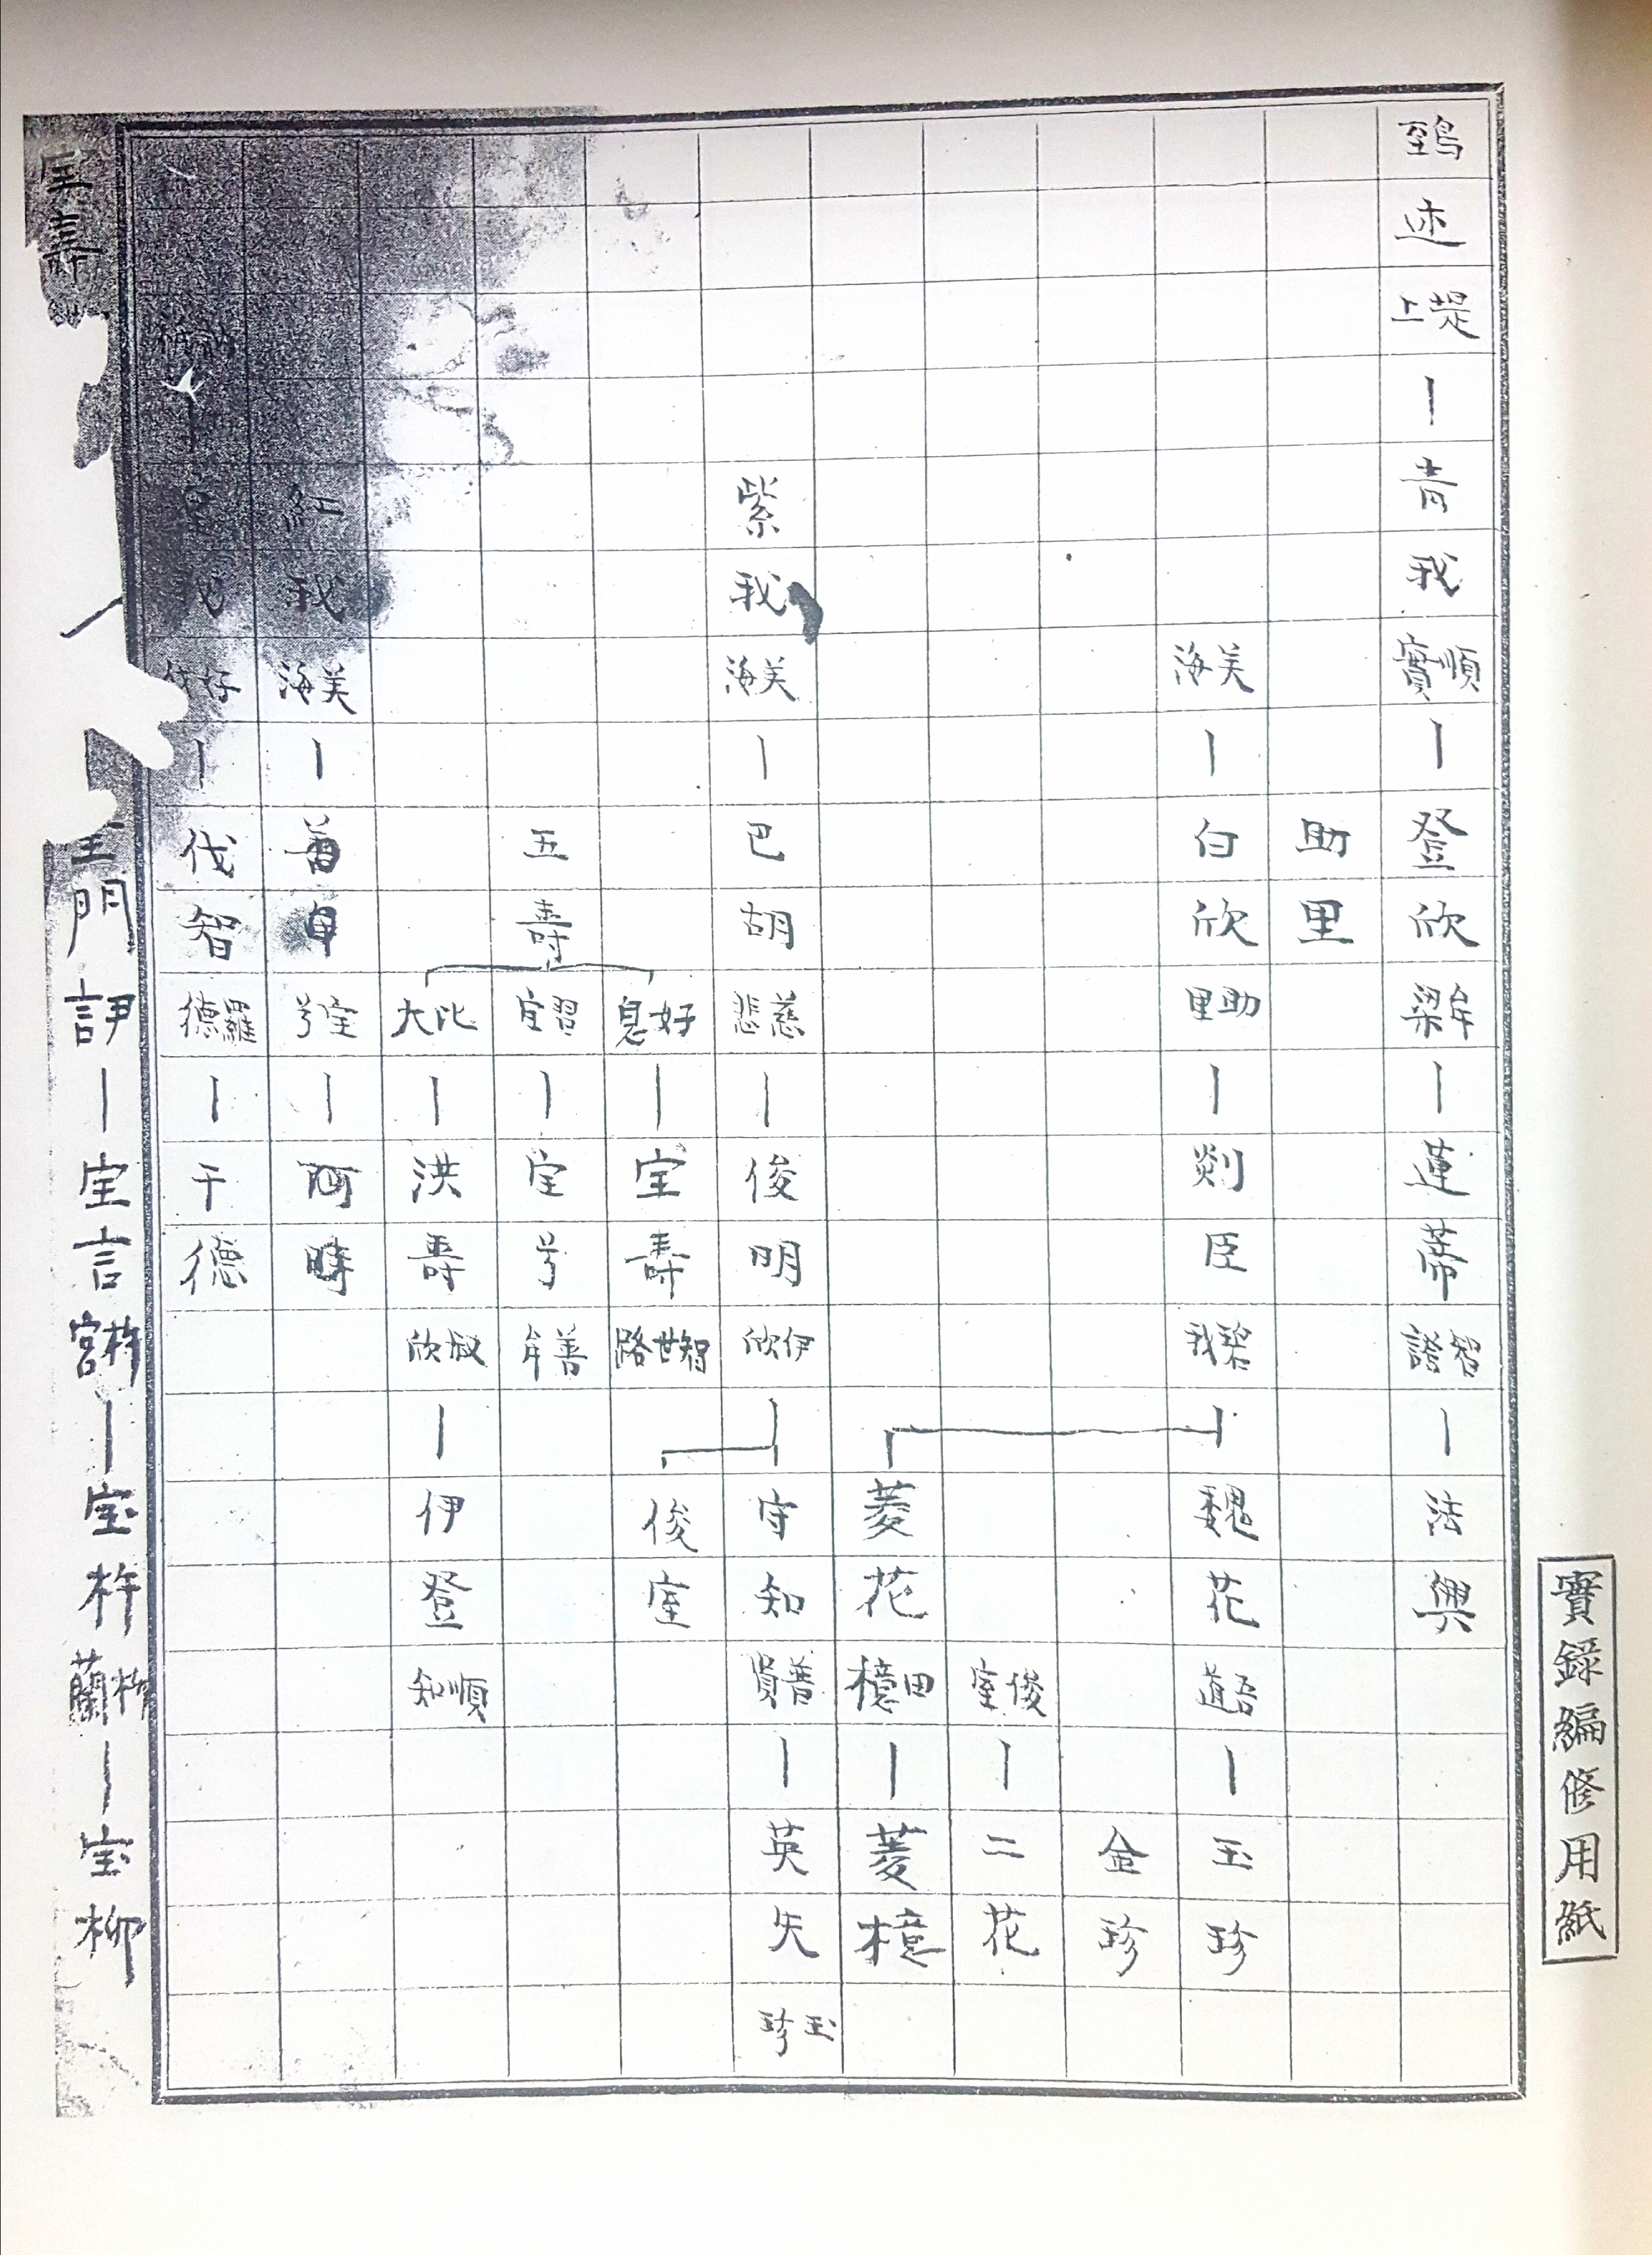 鵄述 堤上 ― 青我 順實 ― 登欣 牟梁 ― 蓮蒂 智證 ― 法興
助里
美海 ― 白欣 助里 ― 剡臣 碧我 ― 魏花 吾道 ― 玉珍
金珍
俊室 ― 二花
菱花 田檍 ― 菱檍
紫我 美海 ― 巴胡 慈悲 ― 俊明 伊欣 ― 守知 善賢 ― 英失 玉珍
好息 ― 宝壽 智世路 俊室
五壽 習宝 ― 宝兮 善牟
比大 ― 洪壽 叔欣 ― 伊登 順知
紅我 美海 ― 宝兮 ― 阿時
我 好 ― 伐智 羅德 ― 干德
門 訝 ― 宝言 杵宮 ― 宝杵 杵蘭 ― 宝柳
實錄編修用紙